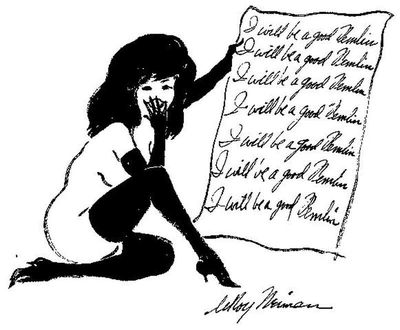 I will be a good Femlin
I will be a good Femlin
I will be a good Femlin
I will be a good Femlin
I will be a good Femlin
I will be a good Femlin
I will be a good Femlin
LeRoy Neiman